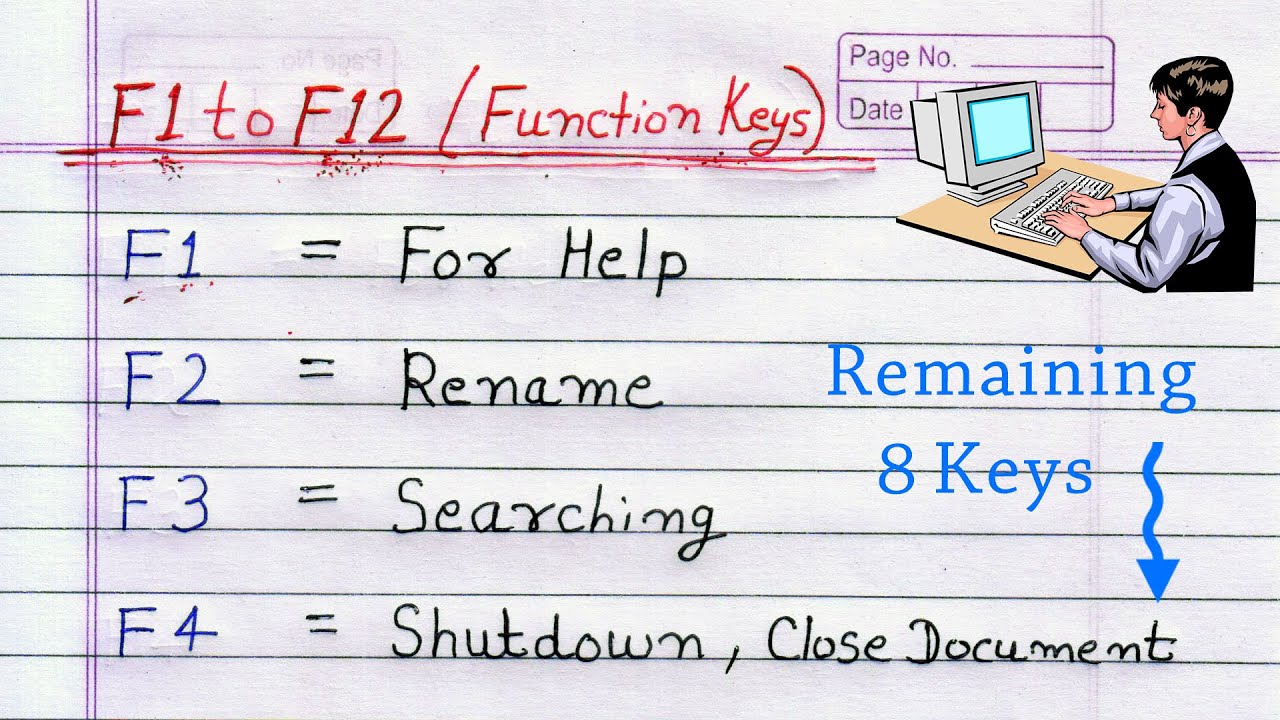 F1 to F12 (Function Keys)
Page No.
Date
F1 = For Help
F2 = Rename
Remaining
8 Keys
F3 = Searching
F4 = Shutdown, Close Document